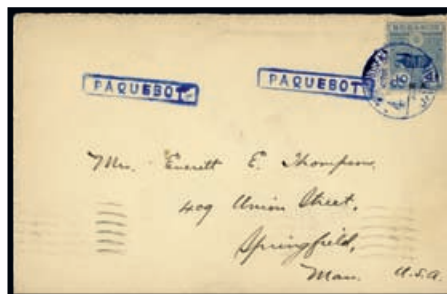 PAQUEBOT
PAQUEBOT
Mrs. Everett E. Thompson,
409 Union Street,
Springfield,
Mass. U.S.A.